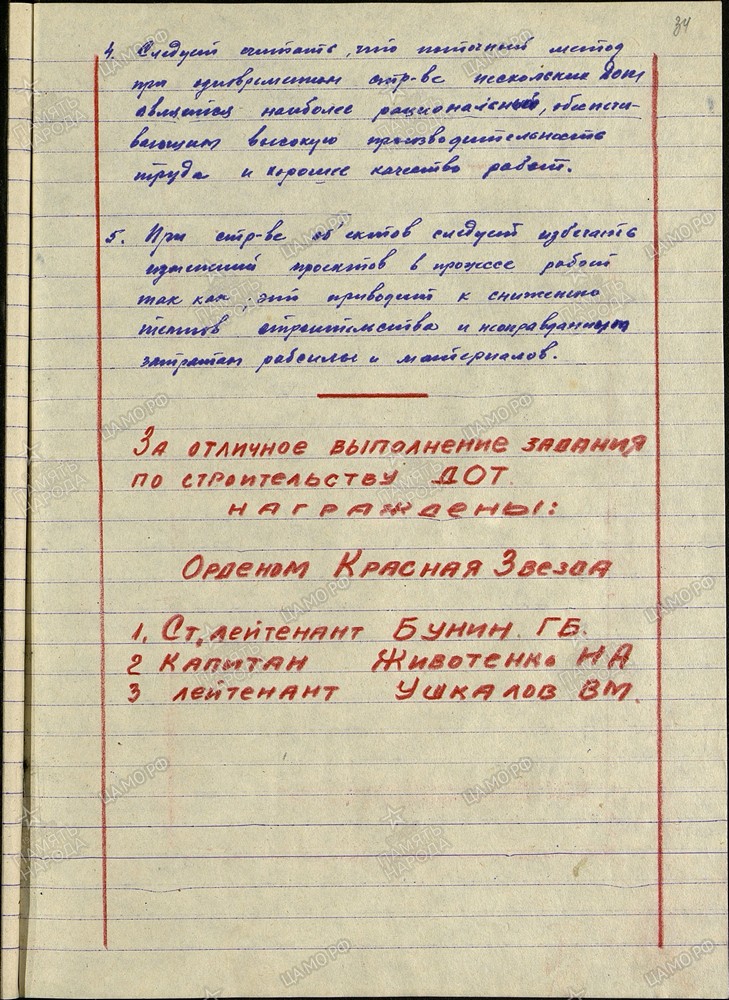 34
4. Следует считать, что поточный метод
при одновременном стр-ве нескольких Дот
является наиболее рациональный, обеспечи-
вающим высокую производительность
труда и хорошее качество работ.
5. При стр-ве об'ектов следует избегать
изменений проектов в процессе работ
так как, эти приводит к снижению
темпов строительства и неоправданным
затратам рабсилы и материалов.
За отличное выполнение задания
по строительству ДОТ.
награждены:
Орденом Красная Звезда
1. Ст. лейтенант Бунин. Г Б.
2 Капитан Животенко Н А
3 лейтенант Ушкалов В М.
ЦАМО.РФ
ПАМЯТЬ
НАРОДА